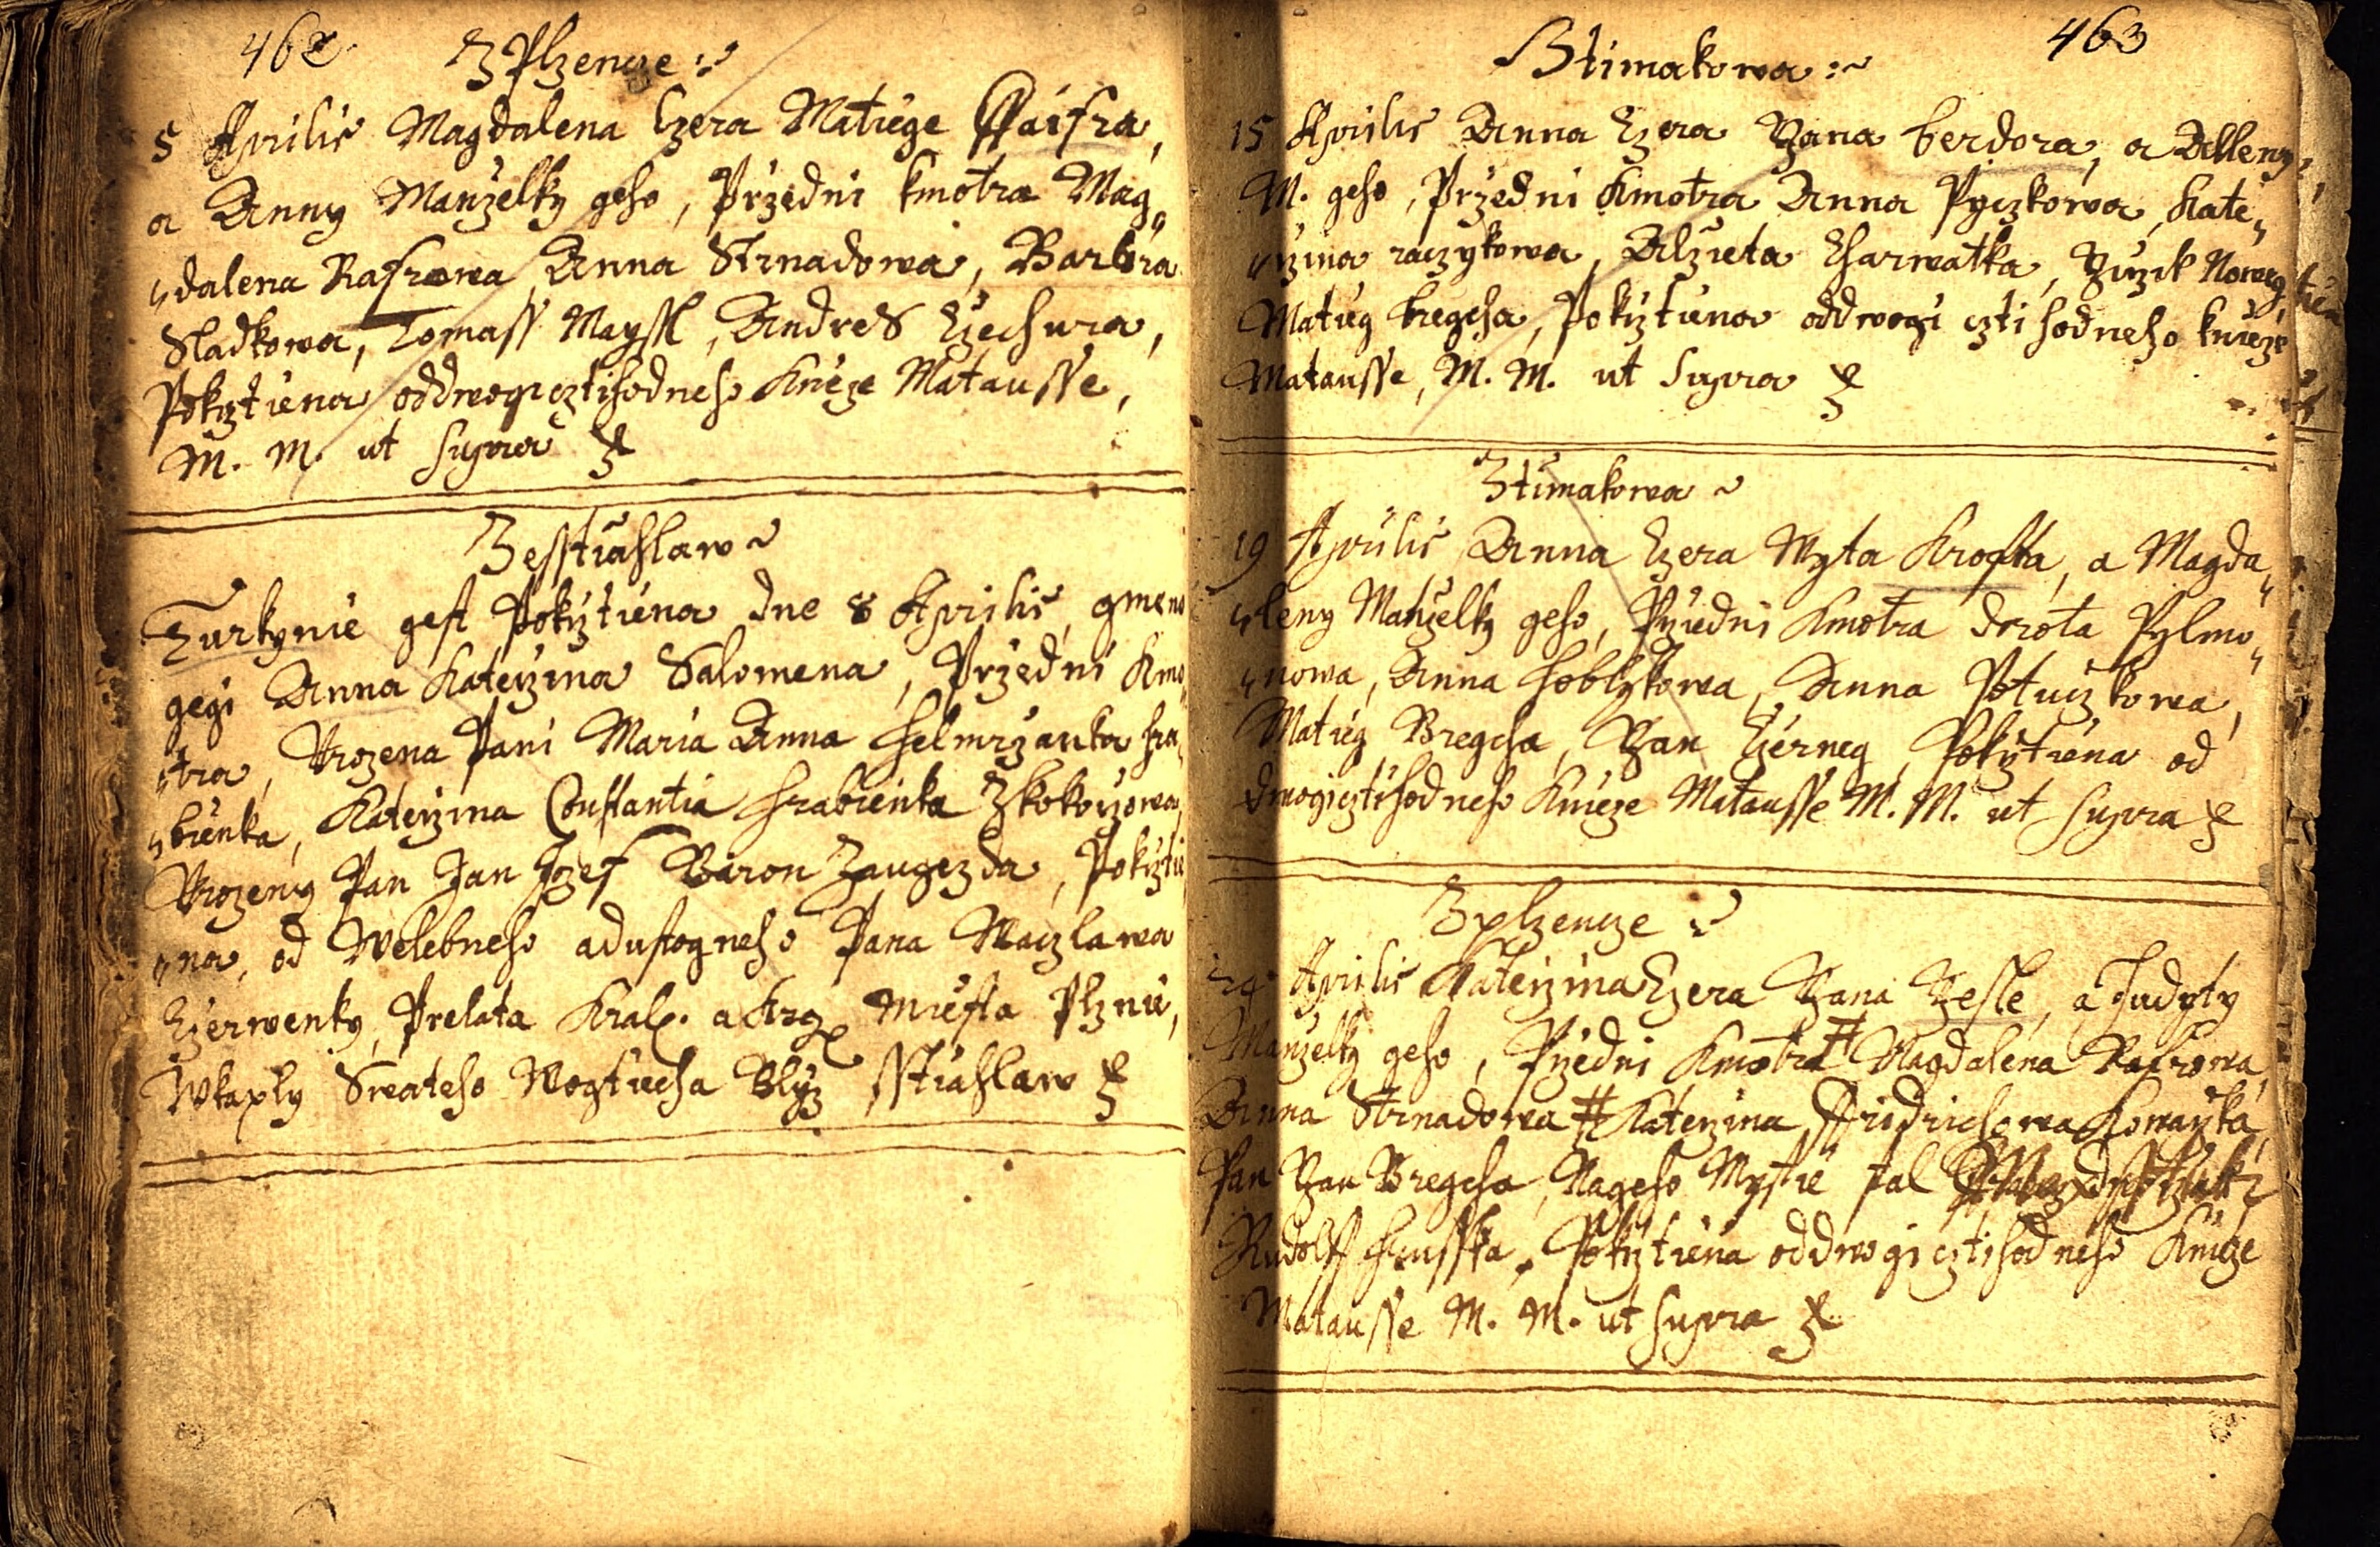 462 Z Plzencze
5 Aprilis Magdalena Czera Matiege Pfaifra,
a Anny Manzelky geho, Przedni kmotra Mag„
„dalena Rafrowa Anna Strnadowa, Barbora
Sladkowa, Tomass Mayssl, Andres Czechura,
Pokrztiena oddwogicztihodneho Knieze Matausse,
M. M. ut supra
Zesstiahlaw
Turkynie gest Pokrztiena dne 8 Aprilis, gmeno
gegi Anna Katerzina Salomena, Przedni Kmo„
„tra, Vrozena Pani Maria Anna Helmrzanka hra„
„bienka, Katerzina Constantia Hrabienka Zkokorzowa,
Vrozeny Pan Jan Jozef Baron Zaugezda, Pokrztie
„na, od Welebneho adustogneho Pana Waczlawa
Czerwenky, Prelata Kral. a Miesta Plznie,
Wkaply Swateho Wogtiecha Blyz sstiahlaw
463
Ztimakowa
15 Aprilis Anna Czera Yana berdora, a Alleny,
M. geho, Przedni Kmotra Anna Pyczkowa, Kate„
„rzina raczykowa, Alzieta Charwatka, Yirzik Noweg,
Matieg bregcha, Pokrztiena oddwogi cztihodneho knieze
Matausse, M. M. ut supra
Ztimakowa
19 Aprilis Anna Czera Wyta Krofta, a Magda„
„leny Manzelky geho, Przedni Kmotra dorota Pylmo„
„nowa, Anna hoblykowa, Anna Potuczkowa,
Matieg Bregcha, Yan Czerneg, Pokrztiena od
dwogicztihodneho Knieze Matausse M. M. ut supra
Zplzencze
24 Aprilis Katerzina Czera Yana Yesle, a Judyty
Manzelky geho, Przedni Kmotra # Magdalena Rafrowa,
Anna Strnadowa # Katerzina Ffridrichowa Kowarzka,
Pan Yan Bregcha, Nageho Mystie stal
Rudolff Hrusska, Pokrztiena oddwogi cztihodneho Knieze
Matausse M. M. ut supra